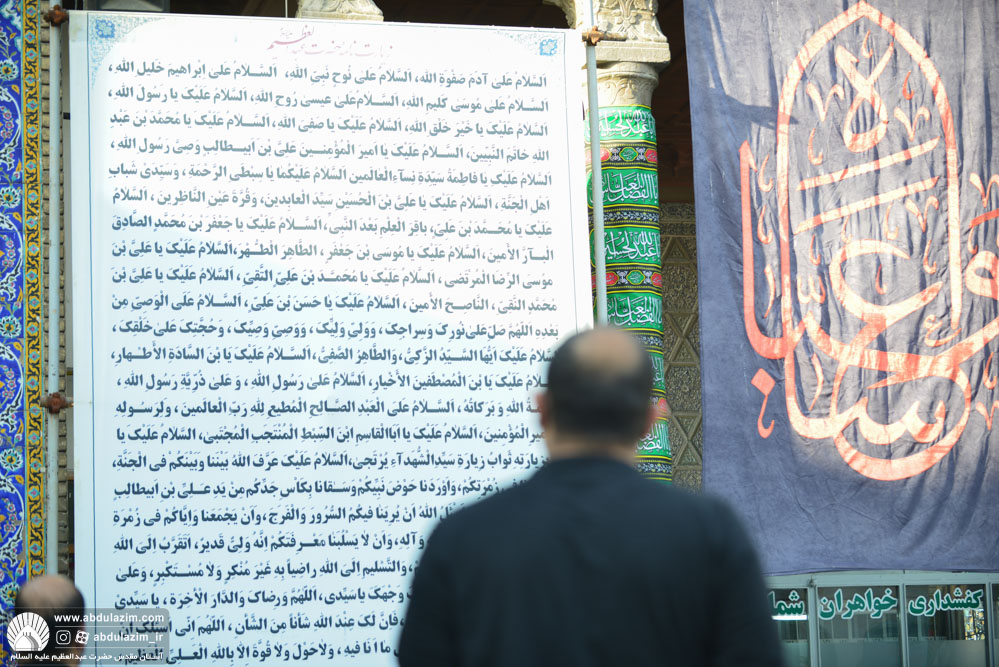 اَلسَّلامُ عَلى آدَمَ صَفْوَةِ اللهِ، اَلسَّلامُ عَلى نُوحٍ نَبِيِّ اللهِ، اَلسَّلامُ عَلى اِبْراهيمَ خَليلِ اللهِ،
اَلسَّلامُ عَلى مُوسى كَليمِ اللهِ، اَلسَّلامُ عَلى عيسى رُوحِ اللهِ، اَلسَّلامُ عَلَيْكَ يا رَسُولَ اللهِ،
اَلسَّلامُ عَلَيْكَ يا خَيْرَ خَلْقِ اللهِ، اَلسَّلامُ عَلَيْكَ يا صَفِىَّ اللهِ، اَلسَّلامُ عَلَيْكَ يا مُحَمَّدَ بْنَ عَبْدِ
اللهِ خاتَمَ النَّبِيّينَ، اَلسَّلامُ عَلَيْكَ يا اَميرَ الْمُؤْمِنينَ عَلِىَّ بْنَ اَبيطالِبٍ وَصِىَّ رَسُولِ اللهِ،
اَلسَّلامُ عَلَيْكِ يا فاطِمَةُ سَيِّدَةَ نِسآءِ الْعالَمينَ اَلسَّلامُ عَلَيْكُما يا سِبْطَىِ الرَّحْمَةِ، وَسَيِّدَى شَبابِ
اَهْلِ الْجَنَّةِ، اَلسَّلامُ عَلَيْكَ يا عَلِىَّ بْنَ الْحُسَيْنِ سَيِّدَ الْعابِدينَ، وَقُرَّةَ عَيْنِ النّاظِرينَ، اَلسَّلامُ
عَلَيْكَ يا مُحَمَّدَ بْنَ عَلِىٍّ، باقِرَ الْعِلْمِ بَعْدَ النَّبِىِّ، اَلسَّلامُ عَلَيْكَ يا جَعْفَرَ بْنَ مُحَمَّدٍ الصّادِقَ
الْبآرَّ الْاَمينَ، اَلسَّلامُ عَلَيْكَ يا مُوسَى بْنَ جَعْفَرٍ، الطّاهِرَ الطُّهْرَ، اَلسَّلامُ عَلَيْكَ يا عَلِىَّ بْنَ
مُوسَى الرِّضَا الْمُرْتَضى، اَلسَّلامُ عَلَيْكَ يا مُحَمَّدَ بْنَ عَلِىٍّ التَّقِىَّ، اَلسَّلامُ عَلَيْكَ يا عَلِىَّ بْنَ
مُحَمَّدٍ النَّقِىَّ، النّاصِحَ الْاَمينَ، اَلسَّلامُ عَلَيْكَ يا حَسَنَ بْنَ عَلِىٍّ، اَلسَّلامُ عَلَى الْوَصِىِّ مِنْ
بَعْدِهِ اَللّهُمَّ صَلِّ عَلى نُورِكَ وَسِراجِكَ، وَوَلِىِّ وَلِيِّكَ، وَوَصِىِّ وَصِيِّكَ، وَحُجَّتِكَ عَلى خَلْقِكَ،
اَلسَّلامُ عَلَيْكَ اَيُّهَا السَّيِّدُ الزَّكِىُّ، وَالطّاهِرُ الصَّفِىُّ، اَلسَّلامُ عَلَيْكَ يَا بْنَ السّادَةِ الْاَطْهارِ،
اَلسَّلامُ عَلَيْكَ يَا بْنَ الْمُصْطَفَيْنَ الْاَخْيارِ، اَلسَّلامُ عَلى رَسُولِ اللهِ، وَ عَلى ذُرِّيَّةِ رَسُولِ اللهِ،
اللهِ وَ بَرَكاتُهُ، اَلسَّلامُ عَلَى الْعَبْدِ الصّالِحِ الْمُطيعِ لِلّهِ رَبِّ الْعالَمينَ، وَلِرَسُولِهِ
الْمُؤْمِنينَ، اَلسَّلامُ عَلَيْكَ يا اَبَا الْقاسِمِ ابْنَ السِّبْطِ الْمُنْتَجَبِ الْمُجْتَبى، اَلسَّلامُ عَلَيْكَ يا
زِيارَتِهِ ثَوابُ زِيارَةِ سَيِّدِ الشُّهَدآءِ يُرْتَجى، اَلسَّلامُ عَلَيْكَ عَرَّفَ اللهُ بَيْنَنا وَبَيْنَكُمْ فِى الْجَنَّةِ،
زُمْرَتِكُمْ، وَاَوْرَدَنا حَوْضَ نَبِيِّكُمْ وَسَقانا بِكَاْسِ جَدِّكُمْ مِنْ يَدِ عَلِىِّ بْنِ اَبيطالِبٍ
اللهَ اَنْ يُرِيَنا فيكُمُ السُّرُورَ وَالْفَرَجَ، وَاَنْ يَجْمَعَنا وَاِيّاكُمْ فى زُمْرَةِ
وَآلِهِ، وَاَنْ لا يَسْلُبَنا مَعْرِفَتَكُمْ اِنَّهُ وَلِىٌّ قَديرٌ، اَتَقَرَّبُ اِلَى اللهِ
وَالتَّسْليمِ اِلَى اللهِ راضِياً بِهِ غَيْرَ مُنْكِرٍ وَلا مُسْتَكْبِرٍ، وَعَلى
وَجْهَكَ يا سَيِّدى، اَللّهُمَّ وَرِضاكَ وَالدّارَ الْآخِرَةَ، يا سَيِّدى
فَاِنَّ لَكَ عِنْدَ اللهِ شَاْناً مِنَ الشَّاْنِ، اَللّهُمَّ اِنّى اَسْئَلُكَ اَنْ
ما اَنَا فيهِ، وَلا حَوْلَ وَلا قُوَّةَ اِلّا بِاللهِ الْعَلِىِّ
کفشداری خواهران شما
www.abdulazim.com
abdulazim_ir
آستان مقدس حضرت عبدالعظیم علیه السلام